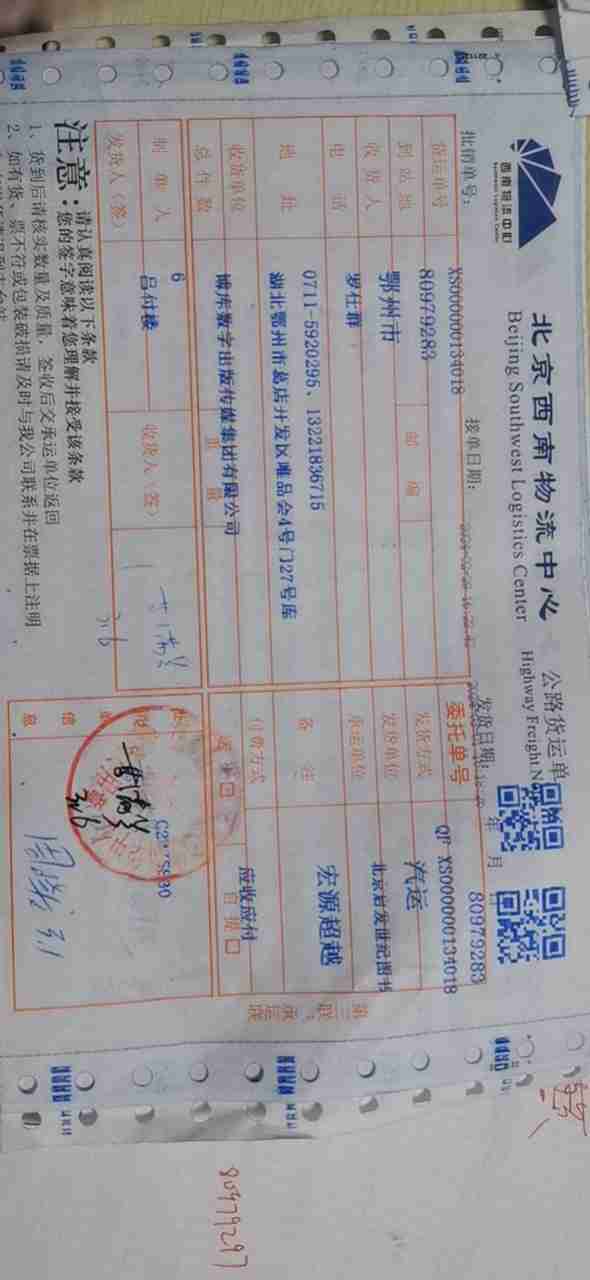 西南物流中心
Southwest Logistics Center
北京西南物流中心
Beijing Southwest Logistics Center
公路货运单
Highway Freight N
批销单号：
XS000000134018
接单日期：
发货日期：
年 月
货运单号
80979283
委托单号
80979283
QP XS000000134018
到站地
鄂州市
邮编
发货方式
汽运
收货人
罗仕群
发货单位
北京启发世纪图书
电话
0711-5920295、13221836715
承运单位
宏源超越
地址
湖北鄂州市葛店开发区唯品会4号门27号库
备注
收货单位
博库数字出版传媒集团有限公司
付费方式
应收应付
总件数
6
重量
送货
自提
制单人
吕付楼
收货人（签）
发货人（签）
3/6
3/6
信息
3.1
第三联：承运联
注意：
请认真阅读以下条款
您的签字意味着您理解并接受该条款
1、货到后请核实数量及质量，签收后交承运单位返回
2、如有货、票不符或包装破损请及时与我公司联系并在票据上注明
80979297